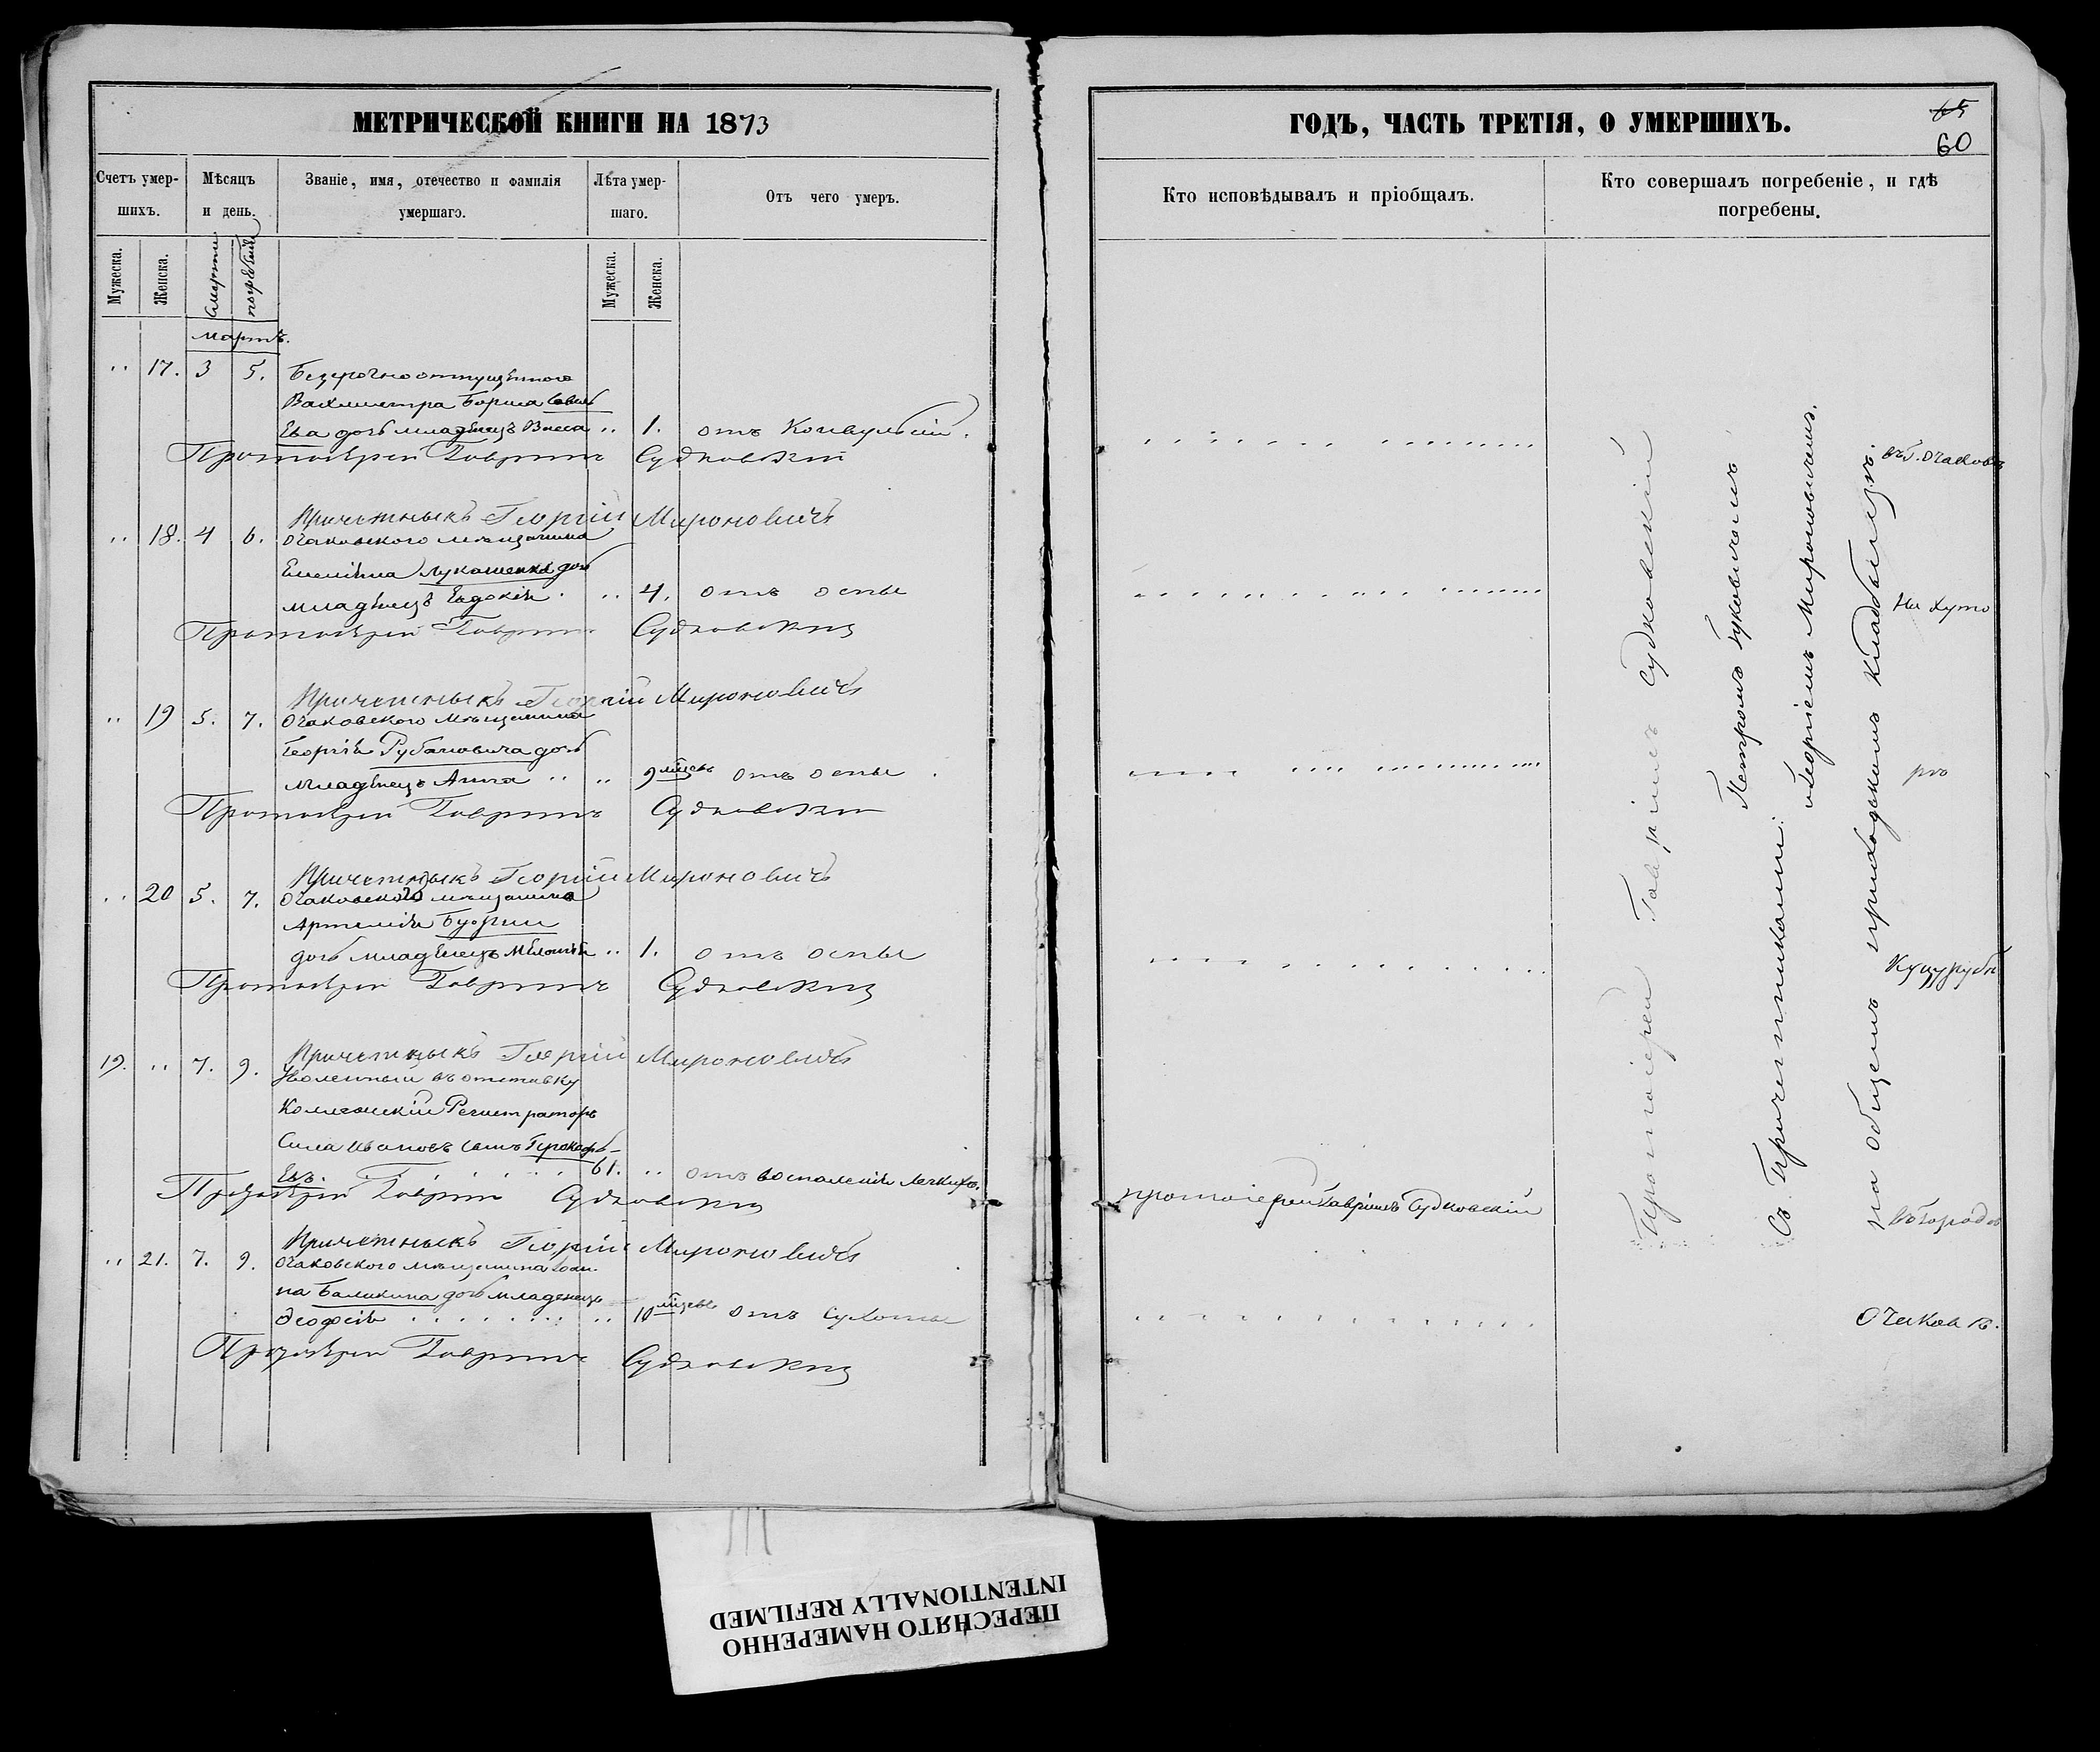 МЕТРИЧЕСКОЙ КНИГИ НА 1873
Счетъ умершихъ.
Мѣсяцъ и день.
Званіе, имя, отечество и фамилія умершаго.
Лѣта умершаго.
Отъ чего умеръ.
Мужеска.
Женска.
Смерти
погребенія
Мужеска.
Женска.
мартъ.
" 17. 3 5. Безсрочноотпущеннаго
Вахмистра Бориса
Ева дочь младенецъ Васса " 1. отъ Конвульсій.
Протоіерей Гавріилъ Судковскій
Причетныкъ Георгій Мироновичъ
" 18. 4 6. Очаковскаго мѣщанина
Емеліяна Лукашенка дочь
младенецъ Евдокія " 4. отъ оспы
Протоіерей Гавріилъ Судковскій
Причетныкъ Георгій Мироновичъ
" 19 5. 7. Очаковскаго мѣщанина
Георгія Рубановича дочь
младенецъ Анна " " 9 мѣсяцевъ отъ оспы
Протоіерей Гавріилъ Судковскій
Причетныкъ Георгій Мироновичъ
" 20 5. 7. Очаковскаго мѣщанина
Артемія
дочь младенецъ " 1. отъ оспы
Протоіерей Гавріилъ Судковскій
Причетныкъ Георгій Мироновичъ
19. " 7. 9. Уволенный въ отставку
Коллежскій Регистраторъ
Сила Ивановъ сынъ Прокофь-
евъ. 61. " отъ воспаленія легкихъ.
Протоіерей Гавріилъ Судковскій
Причетныкъ Георгій Мироновичъ
" 21. 7. 9. Очаковскаго мѣщанина Іоан-
на Баликина дочь младенецъ
Ѳеофсія " 10 мѣсяцевъ отъ сухоты
Протоіерей Гавріилъ Судковскій
ГОДЪ, ЧАСТЬ ТРЕТІЯ, О УМЕРШИХЪ.
65
60
Кто исповѣдывалъ и пріобщалъ.
Кто совершалъ погребеніе, и гдѣ погребены.
протоіерей Гавріилъ Судковскій
Протоіерей Гавріилъ Судковскій
Съ Причетниками: Петромъ Буковичемъ
и Георгіемъ Мироновичемъ.
на общемъ приходскомъ кладбищѣ.
въ г. Очаковѣ
На Хуто
рѣ
Куцурубѣ
Въ городѣ
Очаковѣ.
ПЕРЕСНЯТО НАМЕРЕННО
INTENTIONALLY REFILMED